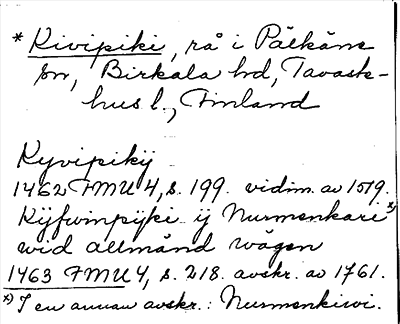 * Kivipiki, rå i Pälkäne
sn, Birkala hd, Tavast-
hus l., Finland
Kyvipikij
1462 FMU 4, s. 199. vidim. av 1579.
Kijfwinpijki ij Nurmenkari x)
wid allmänd wägen
1463 FMU 4, s. 218. avskr. av 1761.
x) I en annan avskr.: Nurmenkivi.